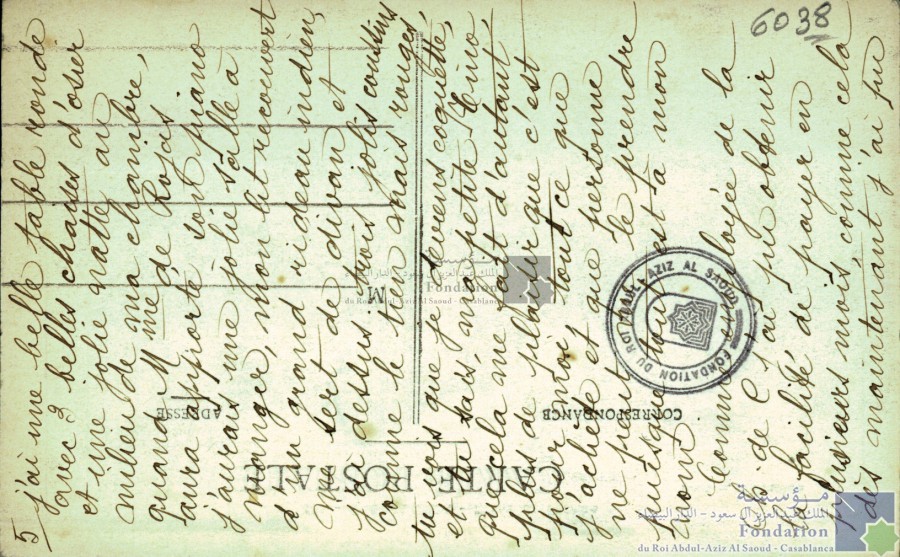 5 j'ai une belle table ronde
avec 3 belles chaises d'osier
et une jolie natte au
milieu de ma chambre,
quand Mme de Rojas
aura apporté son piano
j'aurais une jolie salle à
manger, mon lit recouvert
d'un grand rideau indien,
me sert de divan et
j'ai dessus trois jolis coussins
comme le tien mais rouges,
tu vois que je deviens coquette,
et tu sais, ma petite Nino,
que cela me fait d'autant
plus de plaisir que c'est
pour moi tout ce que
j'achète et que personne
ne peut me le prendre
puisque tout est à mon
nom.
Comme employée de la
Cie de j'ai pu obtenir
la facilité de payer en
plusieurs mois comme cela
dès maintenant j'ai pu
CARTE POSTALE
CORRESPONDANCE
ADRESSE
M
6038
FONDATION DU ROI ABDUL-AZIZ AL SAOUD
مؤسسة
الملك عبد العزيز آل سعود - الدار البيضاء
Fondation
du Roi Abdul-Aziz Al Saoud - Casablanca
الملك عبد العزيز آل سعود - الدار البيضاء
Fondation
du Roi Abdul-Aziz Al Saoud - Casablanca